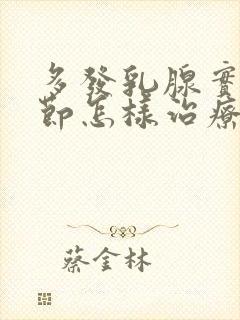 多發乳腺實
節怎樣治療
蔡金林